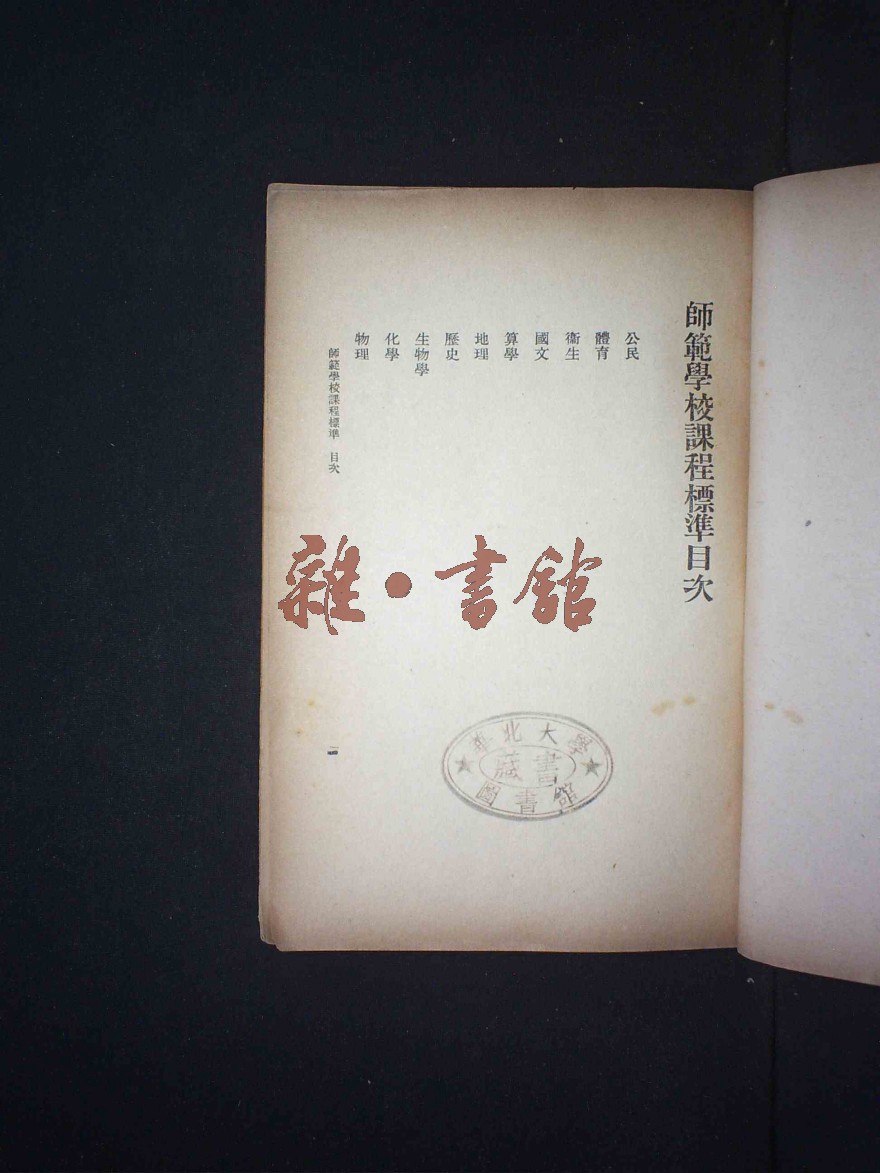 師範學校課程標準目次
公民
體育
衞生
國文
算學
地理
歷史
生物學
化學
物理
師範學校課程標準 目次
一
雜·書館
華北大學
藏書
圖書館